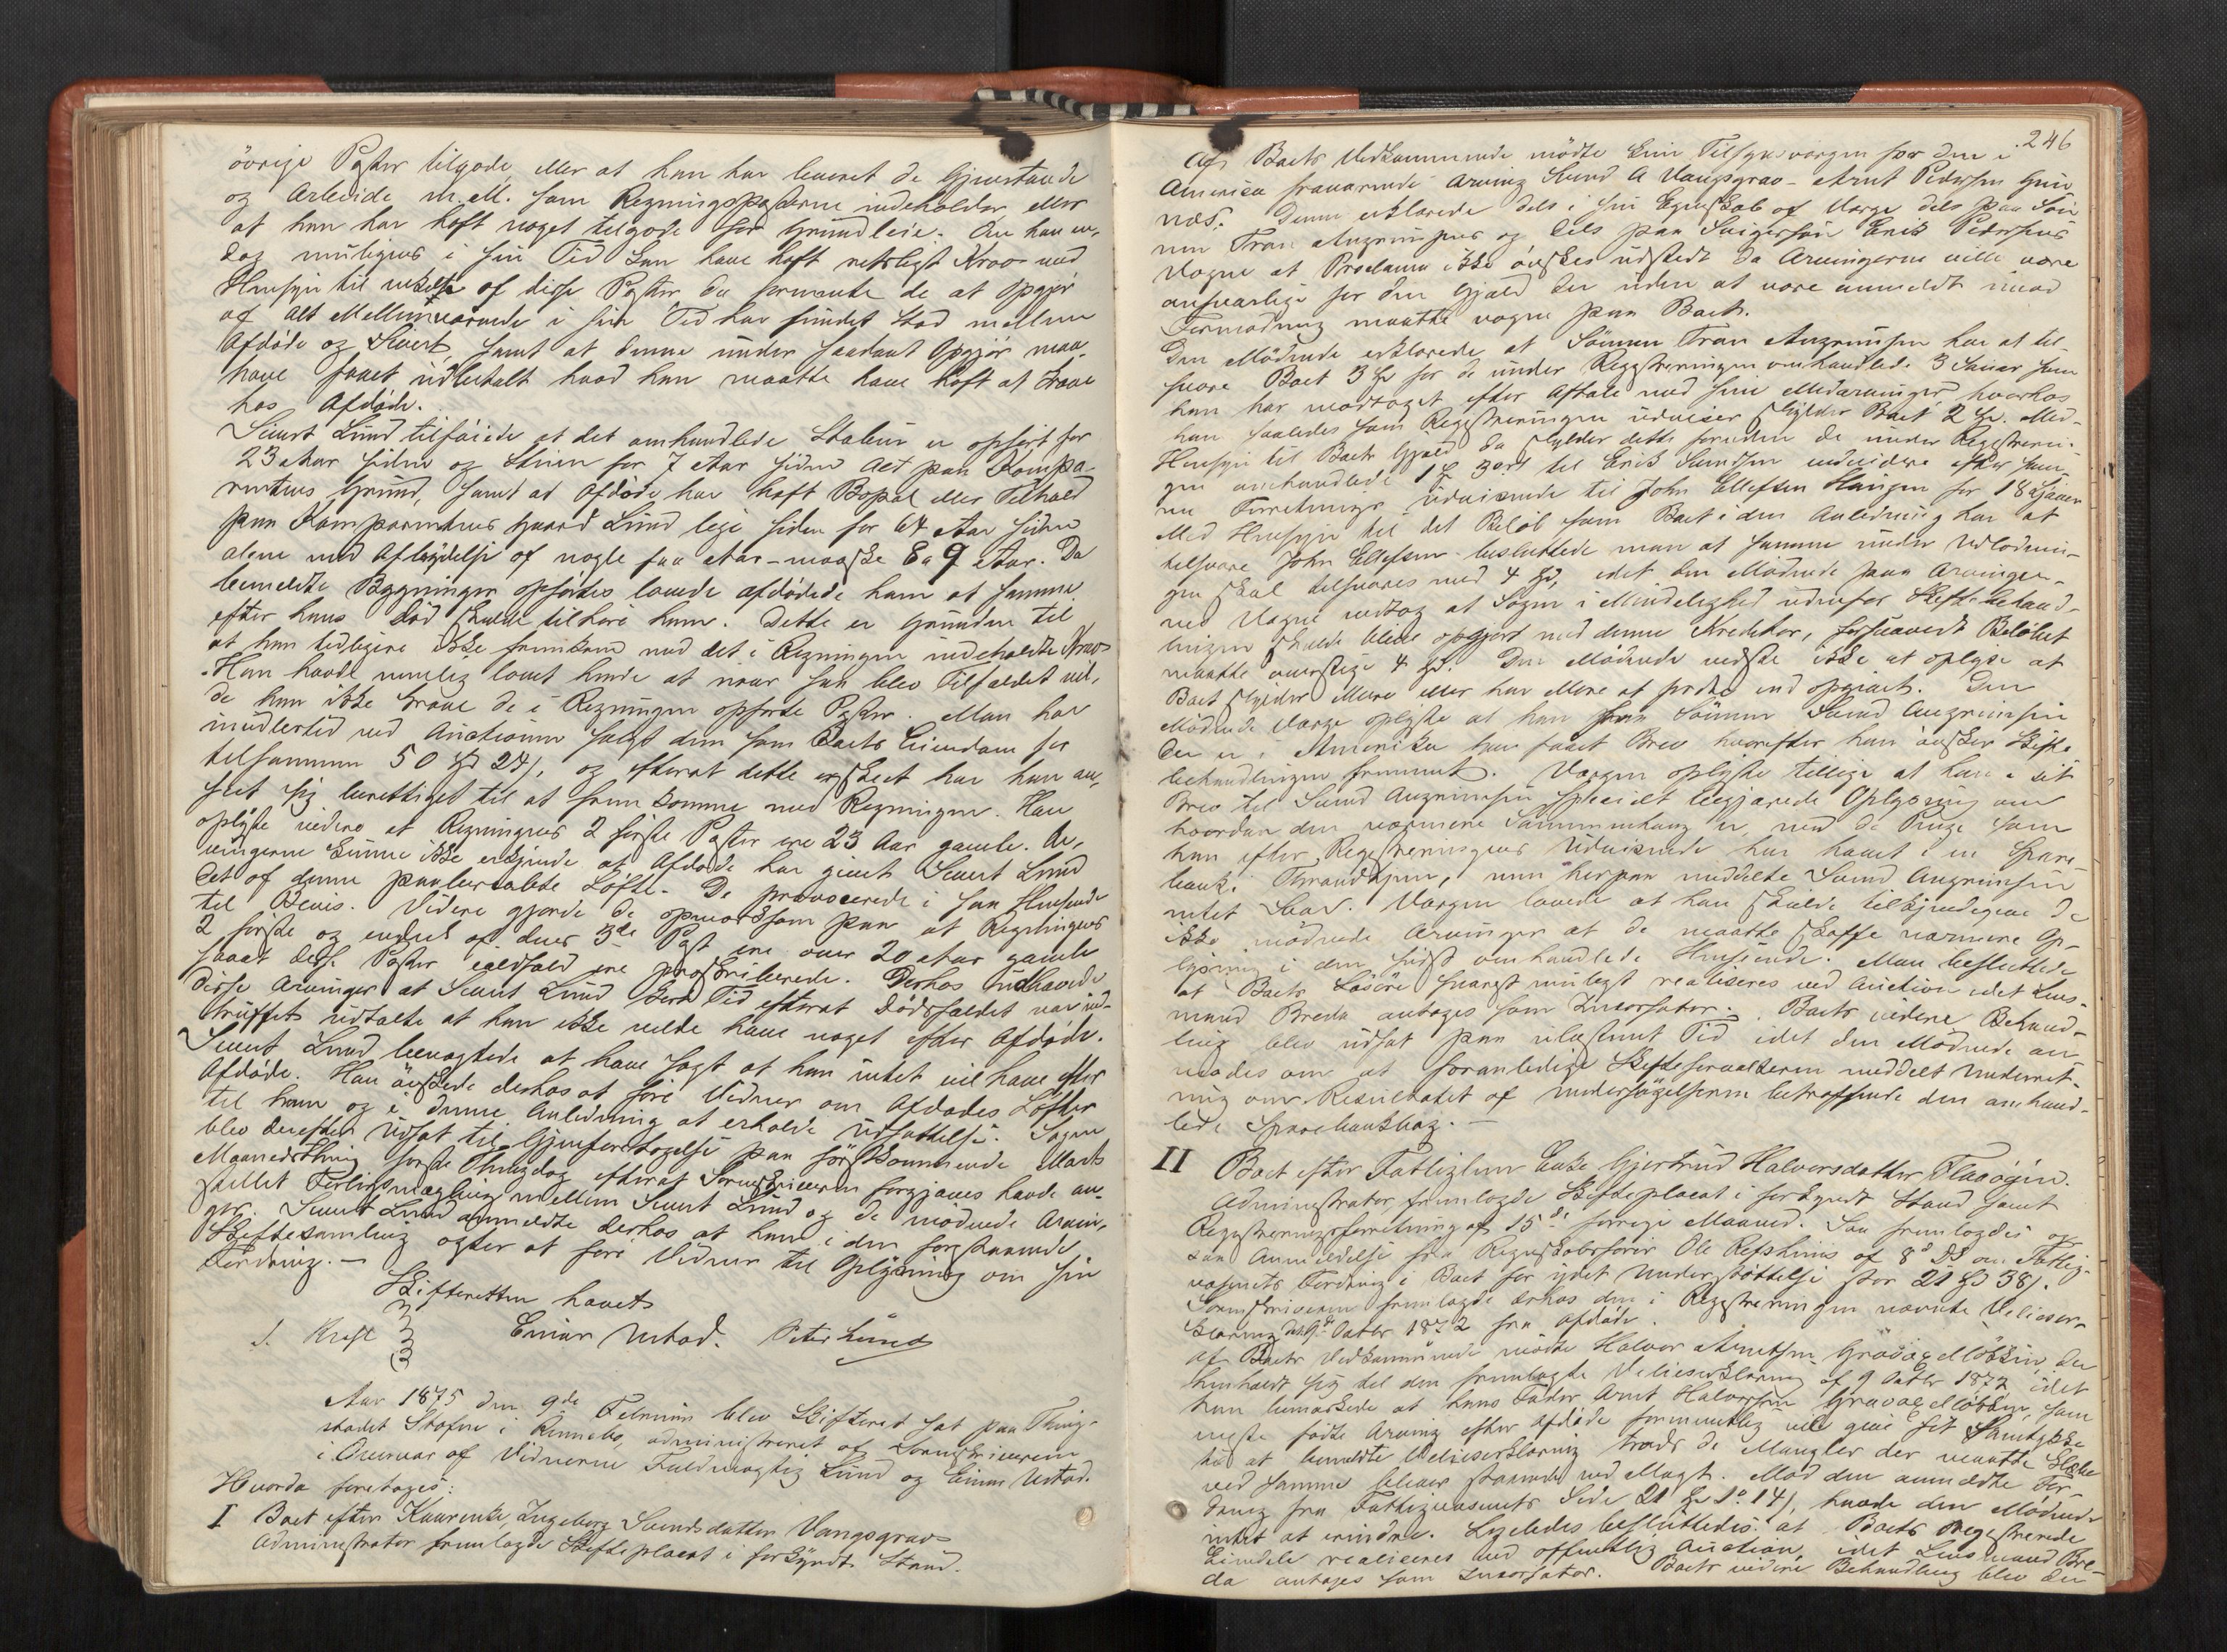 övrige Poster tilgode, eller at han har leveret de Gjenstande
og Arbeide m.M. som Regningsposterne indeholder eller
at han har havt noget tilgode for Grundleie. Om han en-
dog muligens i sin Tid kan have havt retsligt Krav med
Hensyn til nogle af disse Poster da formente de at Opgjør
af alt Mellemværende i sin Tid har fundet Sted mellem
Afdöde og Sivert, samt at denne under saadant Opgjør maa
have faaet udbetalt hvad han maatte have havt at krave
hos Afdöde.
Sivert Lund tilföiede at det omhandlede Stabur er opfört for
23 Aar siden og Stuen for 7 Aar siden Alt paa Kompa-
rentens Grund, samt at Afdöde har havt Bopæl eller Tilhold
paa Komparentens Gaard Lund lige siden for 64 Aar siden
alene med Afbrydelse af nogle faa Aar - maaske 8 a 9 Aar. Da
bemeldte Bygninger opförtes lovede afdöde ham at samme
efter hans Död skulde tilhöre ham. Dette er Grunden til
at han tidligere ikke fremkom med det i Regningen indeholdte Krav.
Han havde nemlig lovet hende at naar saa blev Tilfældet vil-
de han ikke krave de i Regningen opförte Poster. Man har
imidlertid ved Auctionen solgt dem som Boets Eiendom for
tilsammen 50 Spd 24 s, og efterat dette er skeet har han an-
seet sig berettiget til at fremkomme med Regningen. Han
oplyste videre at Regningens 2 förste Poster ere 23 Aar gamle. Ar-
vingerne kunne ikke erkjende at Afdöde har givet Sivert Lund
det af denne paaberaabte Löfte. De provocerede i saa Henseende
til Bevis. Videre gjorde de opmærksom paa at Regningens
2 förste og endel af dens 3die Post ere over 20 Aar gamle
saaat disse Poster ialdfald ere præskriberede. Derhos fremhævede
disse Arvinger at Sivert Lund kort Tid efterat Dödsfaldet var ind-
truffet udtalte at han ikke vilde have noget efter Afdöde.
Sivert Lund benegtede at have sagt at han intet vil have efter
Afdöde. Han önskede derhos at före Vidner om Afdödes Löfter
til ham og i denne Anledning at erholde Udsættelse. Sagen
blev derefter udsat til Gjenforetagelse paa förstkommende Marts
Maanedsthing förste Thingdag efterat Sorenskriveren forgjæves havde an-
stillet Forligsmægling mellem Sivert Lund og de mödende Arvin-
ger. Sivert Lund anmeldte derhos at han i den forestaaende
Skiftesamling agter at före Vidner til Oplysning om sin
Fordring. -
Skifteretten hævet
I. Kreft Einar Ustad. Peter Lund
Aar 1875 den 9de Februar blev Skifteret sat paa Thing-
stedet Stofne i Rennebo, administreret af Sorenskriveren
i Overvær af Vidnerne Fuldmægtig Lund og Einar Ustad.
Hvorda foretoges:
I Boet efter Kaarenke, Ingeborg Svendsdatter Vangsgrav
Administrator fremlagde Skifteplacat i forkyndt Stand.
246
Af Boets Vedkommende mödte kun Tilsynsværgen for den i
America fraværende Arving Svend A Vangsgrav - Arnt Pedersen Grin-
næs. Denne erklærede dels i sin Egenskab af Værge dels paa Sön-
nen Tran Angrimsens og dels paa Svigersön Erik Pedersens
Vegne at Proclama ikke önskes udstedt da Arvingerne ville være
ansvarlige for den Gjæld der uden at være anmeldt imod
Formodning maatte vogne paa Boet.
Den Mödende erklærede at Sönnen Tran Angrimsen har at til-
svare Boet 3 Spd for de under Registreringen omhandlede 3 Sauer som
han har modtaget efter Aftale med sine Medarvinger hvorhos
han saaledes som Registreringen udviser skylder Boet 2 Spd. Med
Hensyn til Boets Gjæld da skylder dette foruden de under Registrerin-
gen omhandlede 1 Spd 3 ort til Erik Svendsen endvidere efter sam-
me Forretnings Udvisende til John Ellefsen Haugen for 18
Med Hensyn til det Belöb som Boet i den Anledning har at
tilsvare John Ellefsen besluttede man at samme under Udlodnin-
gen skal tilsvares med 4 Spd, idet den Mödende paa Arvinger-
nes Vegne vedtog at Sagen i Mindelighed udenfor Skiftebehand-
lingen skulde blive opgjort med denne Kreditor, forsaavidt Belöbet
maatte overstige 4 Spd. Den Mödende vidste ikke at oplyse at
Boet skylder Mere eller har Mere at fordre end opgivet. Den
Mödende Værge oplyste at han fra Sönnen Svend Angrimsen
der er i Amerika har faaet Brev hvorefter han önsker Skifte
behandlingen fremmet. Værgen oplyste tillige at han i sit
Brev til Svend Angrimsen specielt begjærede Oplysning om
hvordan den nærmere Sammenhæng er med de Penge som
han efter Registreringens Udvisende har havt i en Spare-
bank i Throndhjem, men herpaa meddelte Svend Angrimsen
intet Svar. Værgen lovede at han skulde tilkjendegive de
ikke mödende Arvinger at de maatte skaffe nærmere Op-
lysning i den sidst omhandlede Henseende. Man besluttede
at Boets Lösöre snarest muligt realiseres ved Auction idet Lens-
mand Breda antages som Incassator. Boets videre Behand-
ling blev udsat paa ubestemt Tid idet den Mödende an-
modes om at foranledige Skifteforvalteren meddelt Underret-
ning om Resultatet af Undersögelserne betræffende den omhand-
lede Sparebankbog. -
II Boet efter Fattiglem Enke Gjertrud Halvorsdatter Flaaögien.
Administrator fremlagde Skifteplacat i forkyndt Stand samt
Registreringsforretning af 15de forrige Maaned. Saa fremlagdes og-
saa Anmeldelse fra Regnskabsförer Ole Refshuus af 8de ds om Fattig-
væsenets Fordring i Boet for ydet Understöttelse stor 21 Spd 38 s.
Sorenskriveren fremlagde derhos den i Registreringen nævnte Velieser-
klæring dat. 9de Octbr 1872 fra Afdöde.
Af Boets Vedkommende mödte Halvor Arntsen Gravaa, der
henholdt sig til den fremlagte Velieserklæring af 9 Octbr 1872 idet
han bemærkede at hans Fader Arnt Halvorsen Gravaa, som
neste födte Arving efter Afdöde formentlig vil give sit Samtykke
til at bemeldte Velieserklæring trods de Mangler der maatte klæbe
ved samme bliver staaende ved Magt. Mod den anmeldte For-
dring fra Fattigvæsenets Side 21 Spd 1 ort 14 s, havde den Mödende
intet at erindre. Ligeledes besluttedes at Boets registrerede
Eiendele realiseres ved offentlig Auction, idet Lensmand Bre-
da antages som Incassator. Boets videre Behandling blev der-